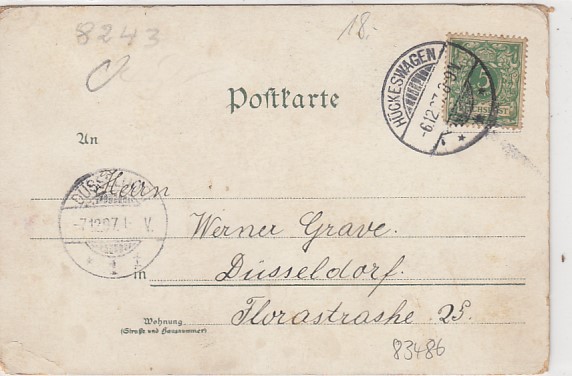 8243
18.-
Postkarte
HÜCKESWAGEN
-6.12.97.
An
Herrn
-7.12.97. 1- V.
1
Werner Grave.
in Düsseldorf.
Wohnung
(Straße und Hausnummer)
Florastraße 25.
83486